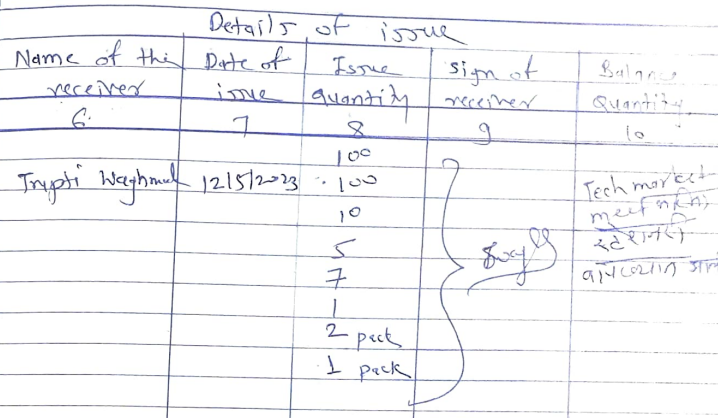 Details of issue
Name of the receiver Date of issue Issue quantity sign of receiver Balance Quantity
6. 7 8 9 10
100
Trupti Waghmul 12/5/2023 100 Tech market
10 meet
5
7
1
2 pack
1 pack